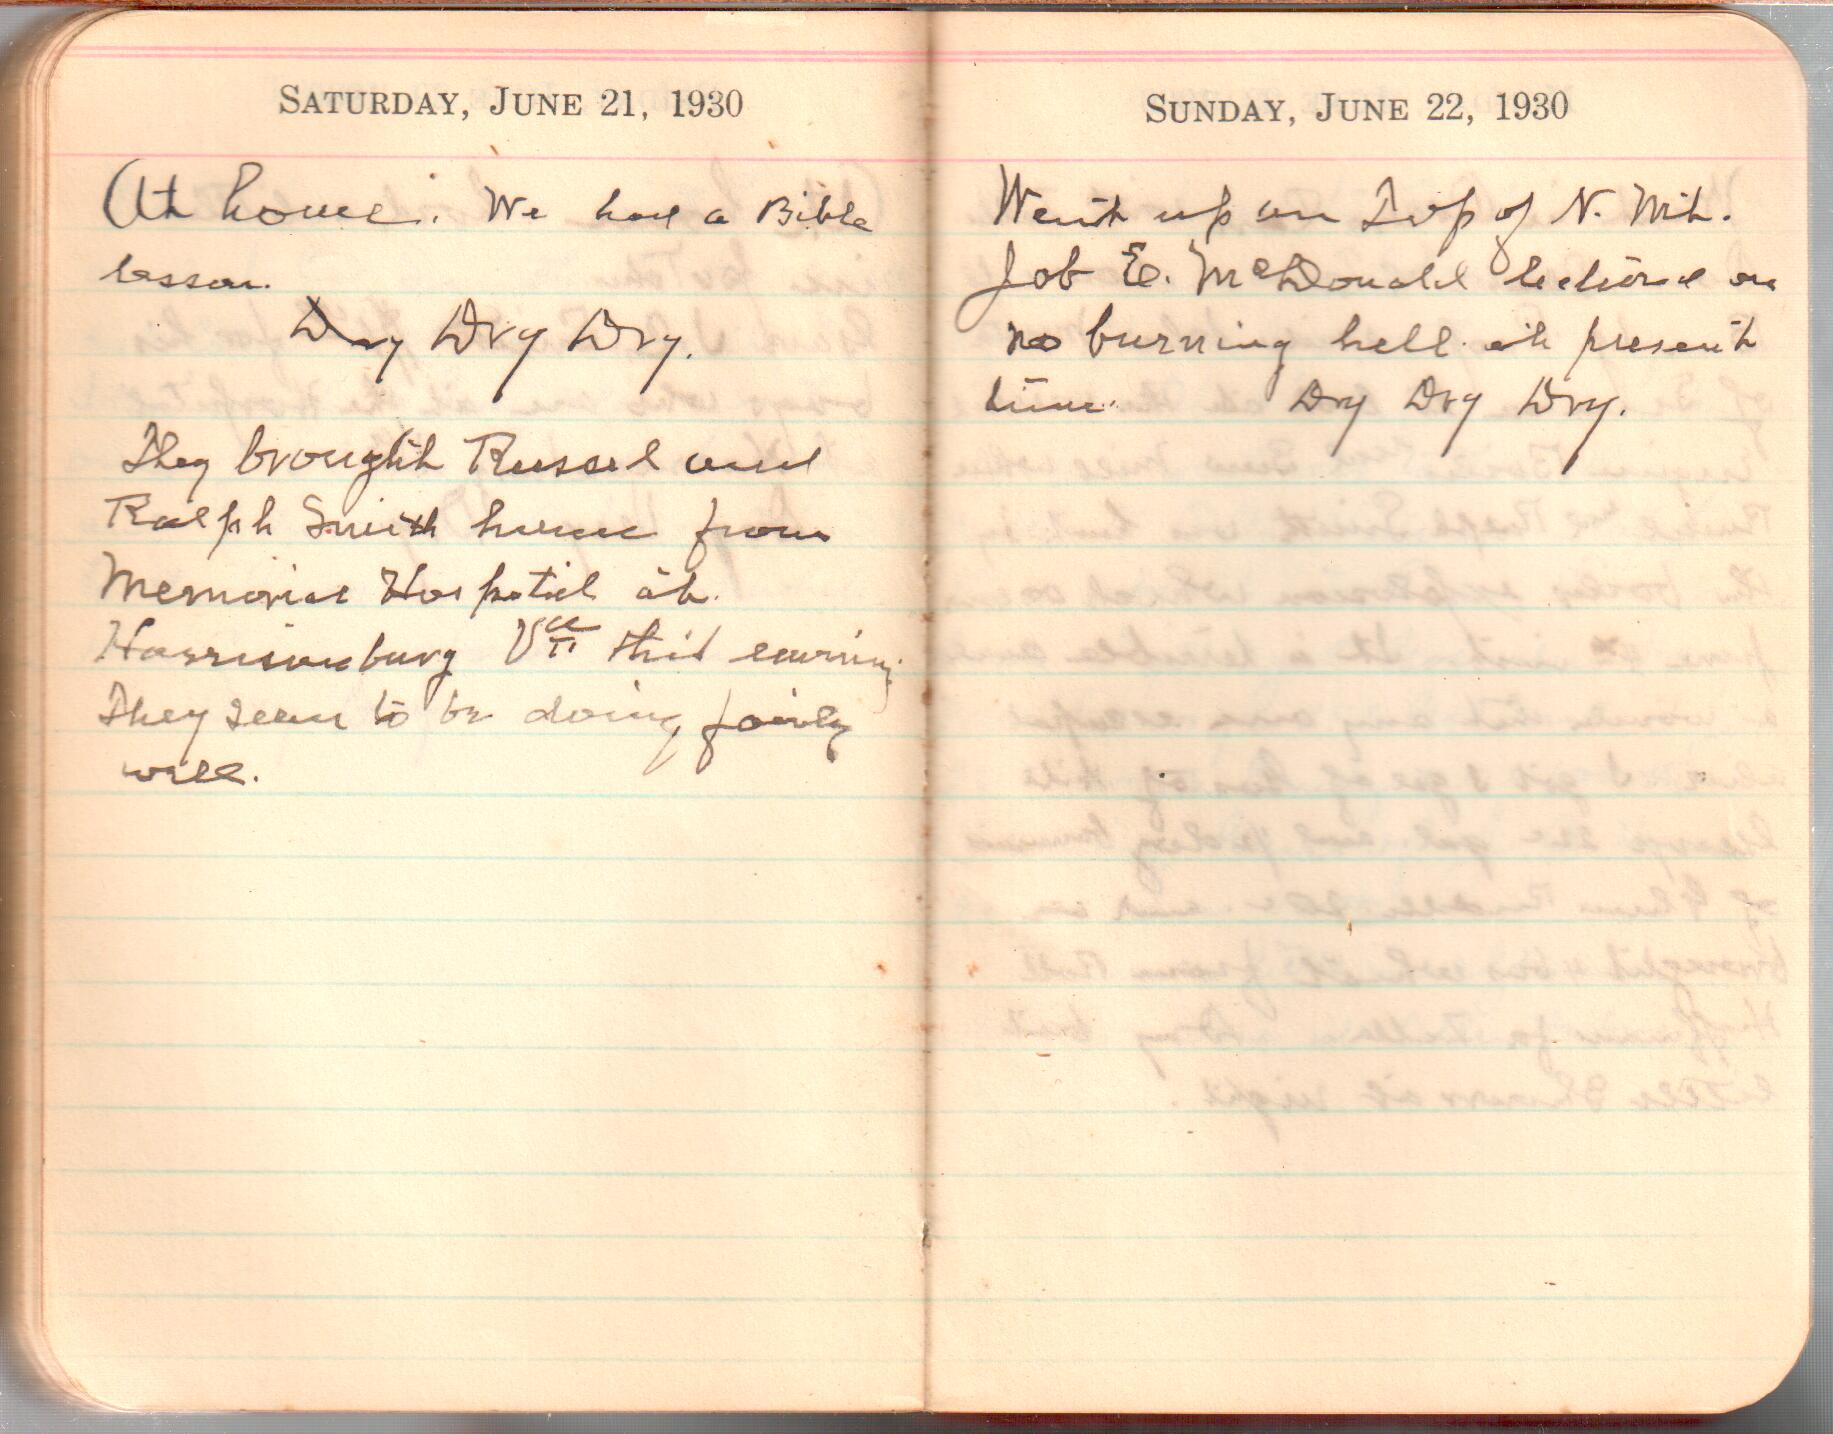 SATURDAY, JUNE 21, 1930
At home. We had a Bible
lesson.
Dry Dry Dry.
They brought Russel and
Ralph Smith home from
Memorial Hospital at
Harrisonburg Va this evening
They seem to be doing fairly
well.
SUNDAY, JUNE 22, 1930
Went up on Top of N. Mt.
Job E. McDonald lectured on
no burning hell at present
time. Dry Dry Dry.